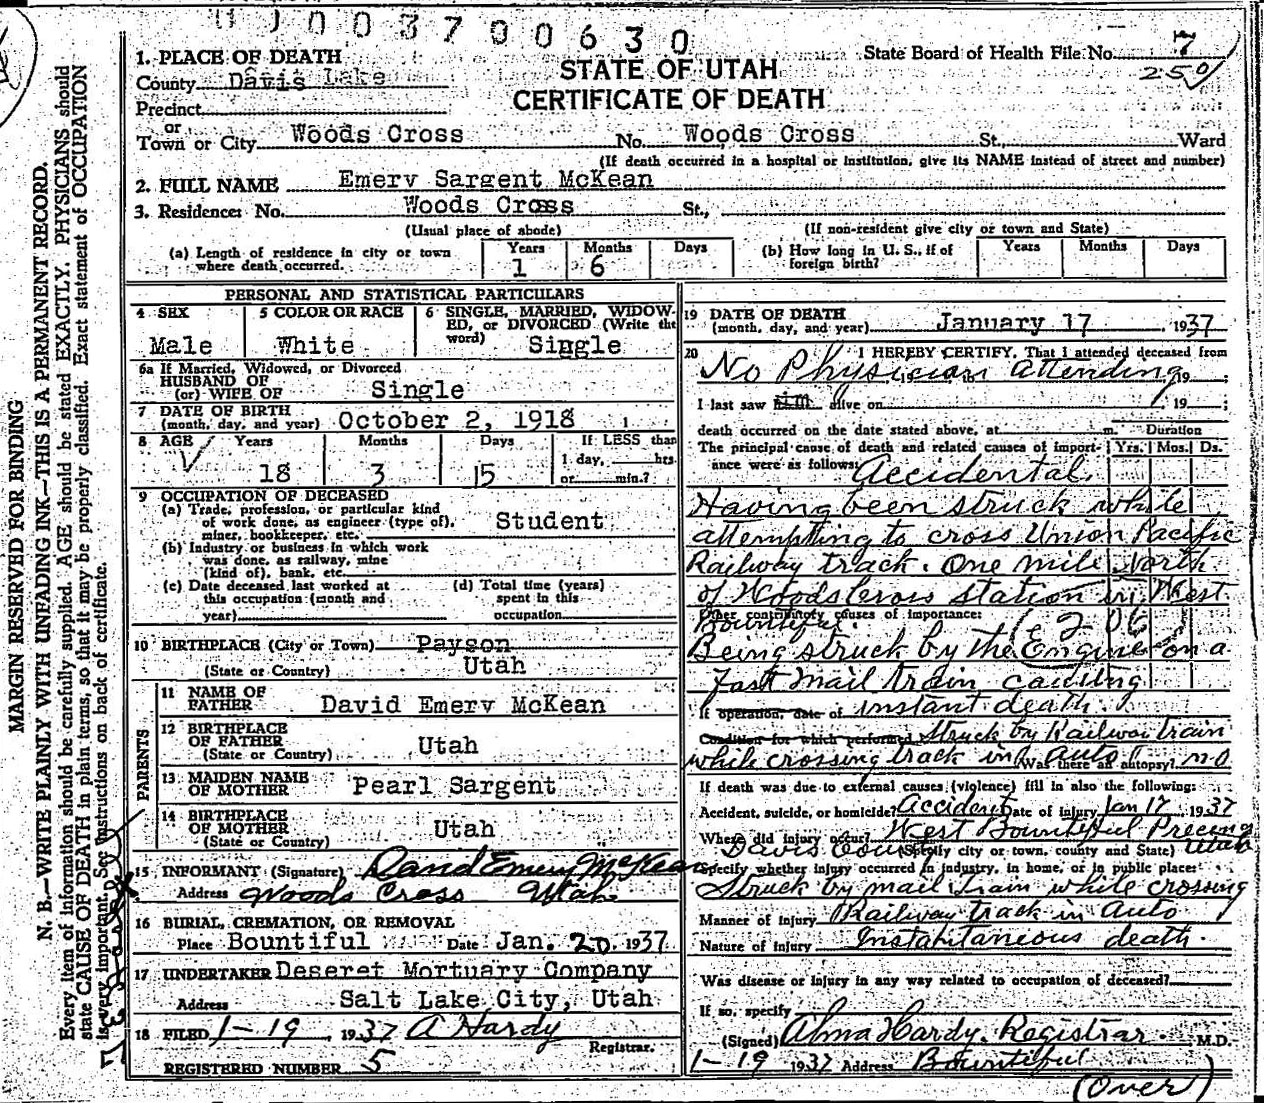 0 0 0 3 7 0 0 6 3 0
State Board of Health File No. 7
250
STATE OF UTAH
CERTIFICATE OF DEATH
1. PLACE OF DEATH
County Davis Lake
Precinct
or
Town or City Woods Cross No. Woods Cross St., Ward
(If death occurred in a hospital or institution, give its NAME instead of street and number)
2. FULL NAME Emery Sargent McKean
3. Residence: No. Woods Cross St.,
(Usual place of abode) (If non-resident give city or town and State)
(a) Length of residence in city or town where death occurred. Years 1 Months 6 Days
(b) How long in U. S., if of foreign birth? Years Months Days
PERSONAL AND STATISTICAL PARTICULARS
4 SEX Male
5 COLOR OR RACE White
6 SINGLE, MARRIED, WIDOWED, or DIVORCED (Write the word) Single
6a If Married, Widowed, or Divorced
HUSBAND OF
(or) WIFE OF Single
7 DATE OF BIRTH
(month, day, and year) October 2, 1918
8 AGE Years 18 Months 3 Days 15 If LESS than 1 day, hrs. or min.?
9 OCCUPATION OF DECEASED
(a) Trade, profession, or particular kind
of work done, as engineer (type of),
miner, bookkeeper, etc. Student
(b) Industry or business in which work
was done, as railway, mine
(kind of), bank, etc.
(c) Date deceased last worked at
this occupation (month and
year)
(d) Total time (years)
spent in this
occupation
10 BIRTHPLACE (City or Town) Payson
(State or Country) Utah
PARENTS
11 NAME OF
FATHER David Emery McKean
12 BIRTHPLACE
OF FATHER
(State or Country) Utah
13 MAIDEN NAME
OF MOTHER Pearl Sargent
14 BIRTHPLACE
OF MOTHER
(State or Country) Utah
15 INFORMANT (Signature) David Emery McKean
Address Woods Cross Utah
16 BURIAL, CREMATION, OR REMOVAL
Place Bountiful Date Jan. 20 1937
17 UNDERTAKER Deseret Mortuary Company
Address Salt Lake City, Utah
18 FILED 1-19 1937 A Hardy
Registrar.
REGISTERED NUMBER 5
19 DATE OF DEATH
(month, day, and year) January 17, 1937
20 I HEREBY CERTIFY, That I attended deceased from
No Physician attending, 19
I last saw him alive on 19
death occurred on the date stated above, at m. Duration
The principal cause of death and related causes of importance were as follows: Yrs. Mos. Ds.
Accidental.
Having been struck while
attempting to cross Union Pacific
Railway track. One mile North
of Woods Cross station in West
Other contributory causes of importance:
Bountiful. 206
Being struck by the Engine on a
Fast mail train causing
If operation, date of instant death.
Condition for which performed Struck by Railway train
while crossing track in Auto Was there an autopsy? no
If death was due to external causes (violence) fill in also the following:
Accident, suicide, or homicide? Accident Date of injury Jan 17 1937
Where did injury occur? West Bountiful Precinct
Davis County (Specify city or town, county and State) Utah
Specify whether injury occurred in industry, in home, or in public place:
Struck by mail train while crossing
Manner of injury Railway track in Auto
Nature of injury Instantaneous death.
Was disease or injury in any way related to occupation of deceased?
If so, specify
(Signed) Alma Hardy. Registrar M.D.
1-19 1937 Address Bountiful
(Over)
MARGIN RESERVED FOR BINDING
N. B.—WRITE PLAINLY WITH UNFADING INK—THIS IS A PERMANENT RECORD.
Every item of information should be carefully supplied. AGE should be stated EXACTLY. PHYSICIANS should
state CAUSE OF DEATH in plain terms, so that it may be properly classified. Exact statement of OCCUPATION
is very important. See instructions on back of certificate.